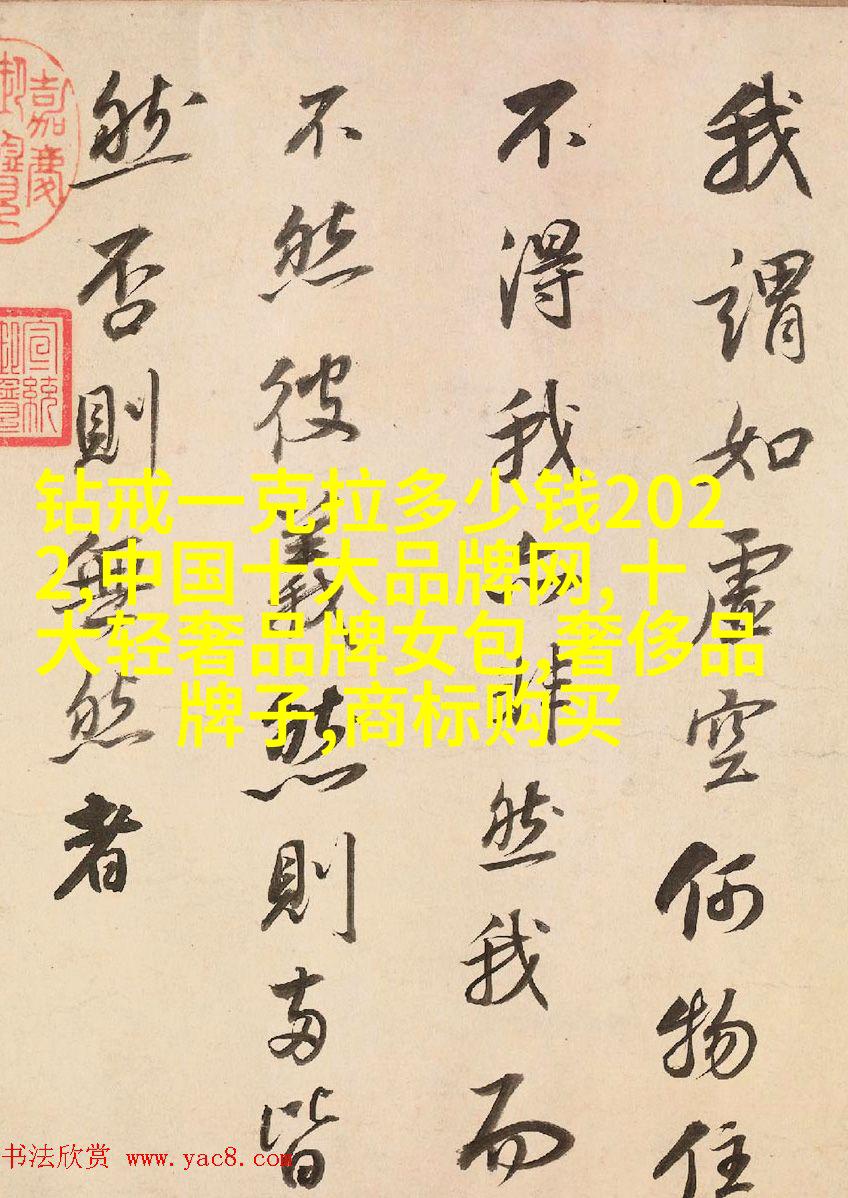 我謂如虛空何物住
不得我然我而
不然彼義然則兩皆
然否則無然者
嘉慶
御覽
宣統
钻戒一克拉多少钱202
2,中国十大品牌网,十
大轻奢品牌女包,奢侈品
牌子,商标购买
书法欣赏 www.yac8.com